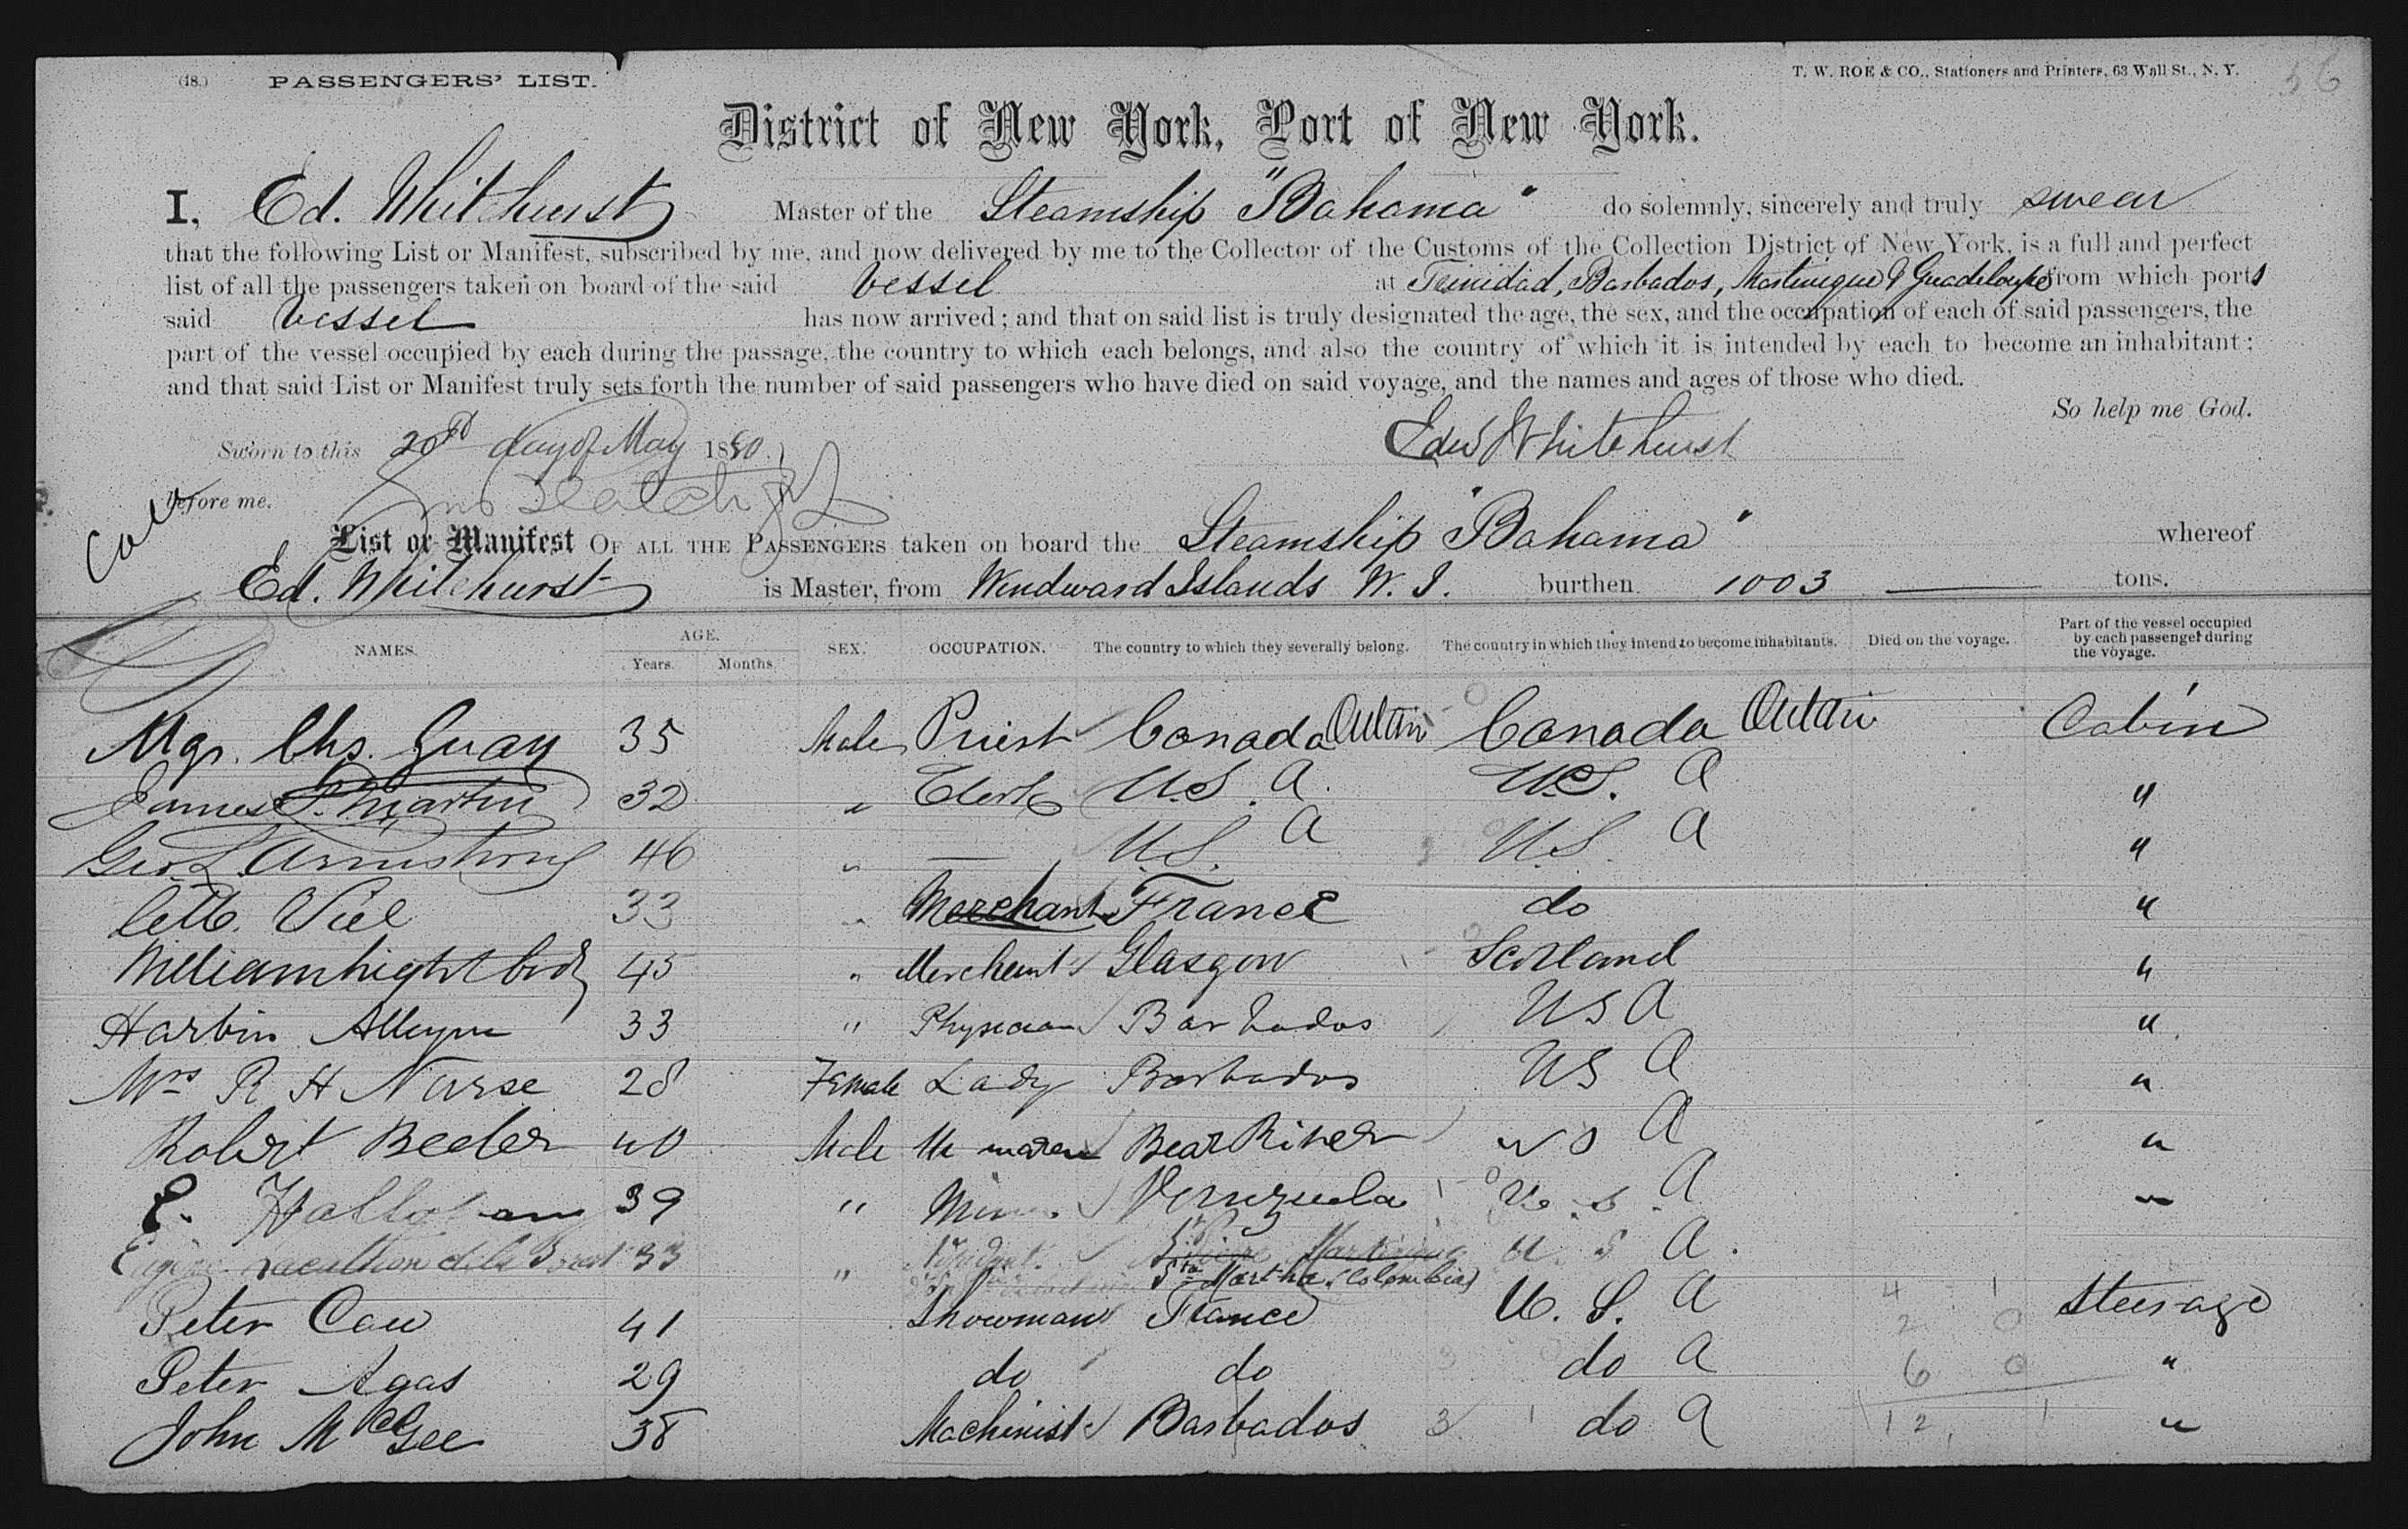 (18.) PASSENGERS' LIST. T. W. ROE & CO., Stationers and Printers, 63 Wall St., N. Y. 56
District of New York, Port of New York.
I, Ed. Whitehurst Master of the Steamship "Bahama" do solemnly, sincerely and truly swear
that the following List or Manifest, subscribed by me, and now delivered by me to the Collector of the Customs of the Collection District of New York, is a full and perfect
list of all the passengers taken on board of the said Vessel at Trinidad, Barbados, Martinique & Guadeloupe from which ports
said Vessel has now arrived; and that on said list is truly designated the age, the sex, and the occupation of each of said passengers, the
part of the vessel occupied by each during the passage, the country to which each belongs, and also the country of which it is intended by each to become an inhabitant;
and that said List or Manifest truly sets forth the number of said passengers who have died on said voyage, and the names and ages of those who died.
So help me God.
Sworn to this 20th day of May 1880. Edw Whitehurst
before me.
List or Manifest OF ALL THE PASSENGERS taken on board the Steamship "Bahama" whereof
Ed. Whitehurst is Master, from Windward Islands W. I. burthen 1003 tons.
NAMES. AGE. Years. Months. SEX. OCCUPATION. The country to which they severally belong. The country in which they intend to become inhabitants. Died on the voyage. Part of the vessel occupied by each passenger during the voyage.
Mgr. Chs. Guay 35 Male Priest Canada Canada Cabin
James P. Martin 32 " Clerk U.S.A. U.S.A "
Geo. L. Armstrong 46 " — U.S.A U.S.A "
Viel 33 " Merchant France do "
William Lightbody 45 " Merchant Glasgow Scotland "
Harbin Alleyne 33 " Physician Barbados USA "
Mrs R H Nurse 28 Female Lady Barbados US A "
Robert Beeler 40 Male Bear River U S A "
E. 39 " Venezuela U.S.A "
33 " Student Sta Martha (Colombia) U S A.
Peter Cau 41 Showman France U.S.A Steerage
Peter Agas 29 do do do A "
John McGee 38 Machinist Barbados do A "